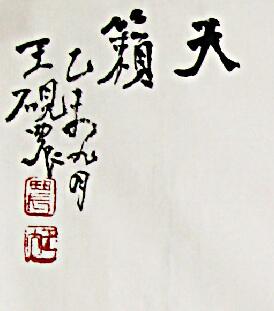 天籟
乙未九月
王硯農